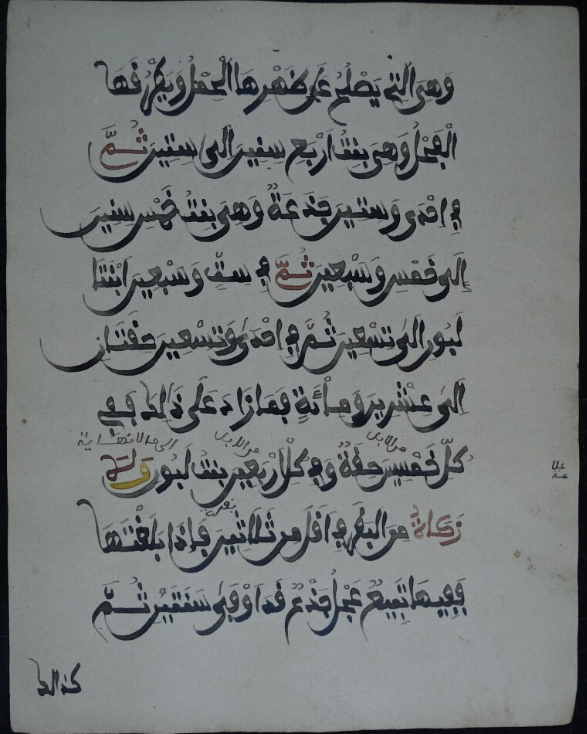 وهي التي يصلح على ظهرها الحمل ويطرقها
الفحل وهي بنت أربع سنين إلى ستين ثم
في احدى وستين جذعة وهي بنت خمس سنين
إلى خمس وسبعين ثم في ست وسبعين ابنتا
لبون إلى تسعين ثم في احدى وتسعين حقتان
إلى عشرين ومائة فما زاد على ذلك ففي
من الابل من الابل إلى ما لا نهاية
كل خمسين حقة وفي كل أربعين بنت لبون ولا
بقرة
زكاة من البقر في اقل من ثلاثين فإذا بلغتها
ففيها تبيع عجل جذع قد اوفى سنتين ثم
كذلك